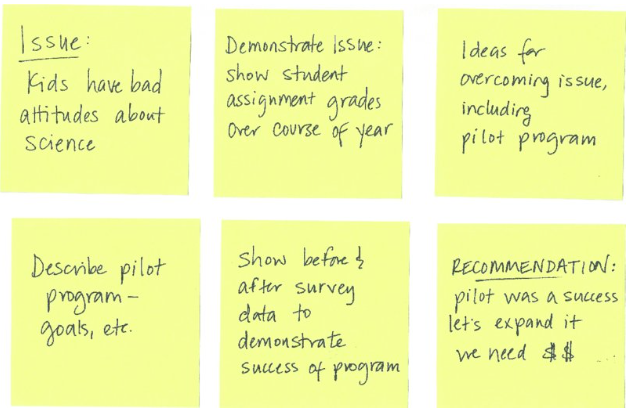 Issue:
Kids have bad
attitudes about
Science
Demonstrate Issue:
show student
assignment grades
over course of year
Ideas for
overcoming issue,
including
pilot program
Describe pilot
program –
goals, etc.
Show before &
after survey
data to
demonstrate
success of program
RECOMMENDATION:
pilot was a success
let's expand it
we need $$ ...